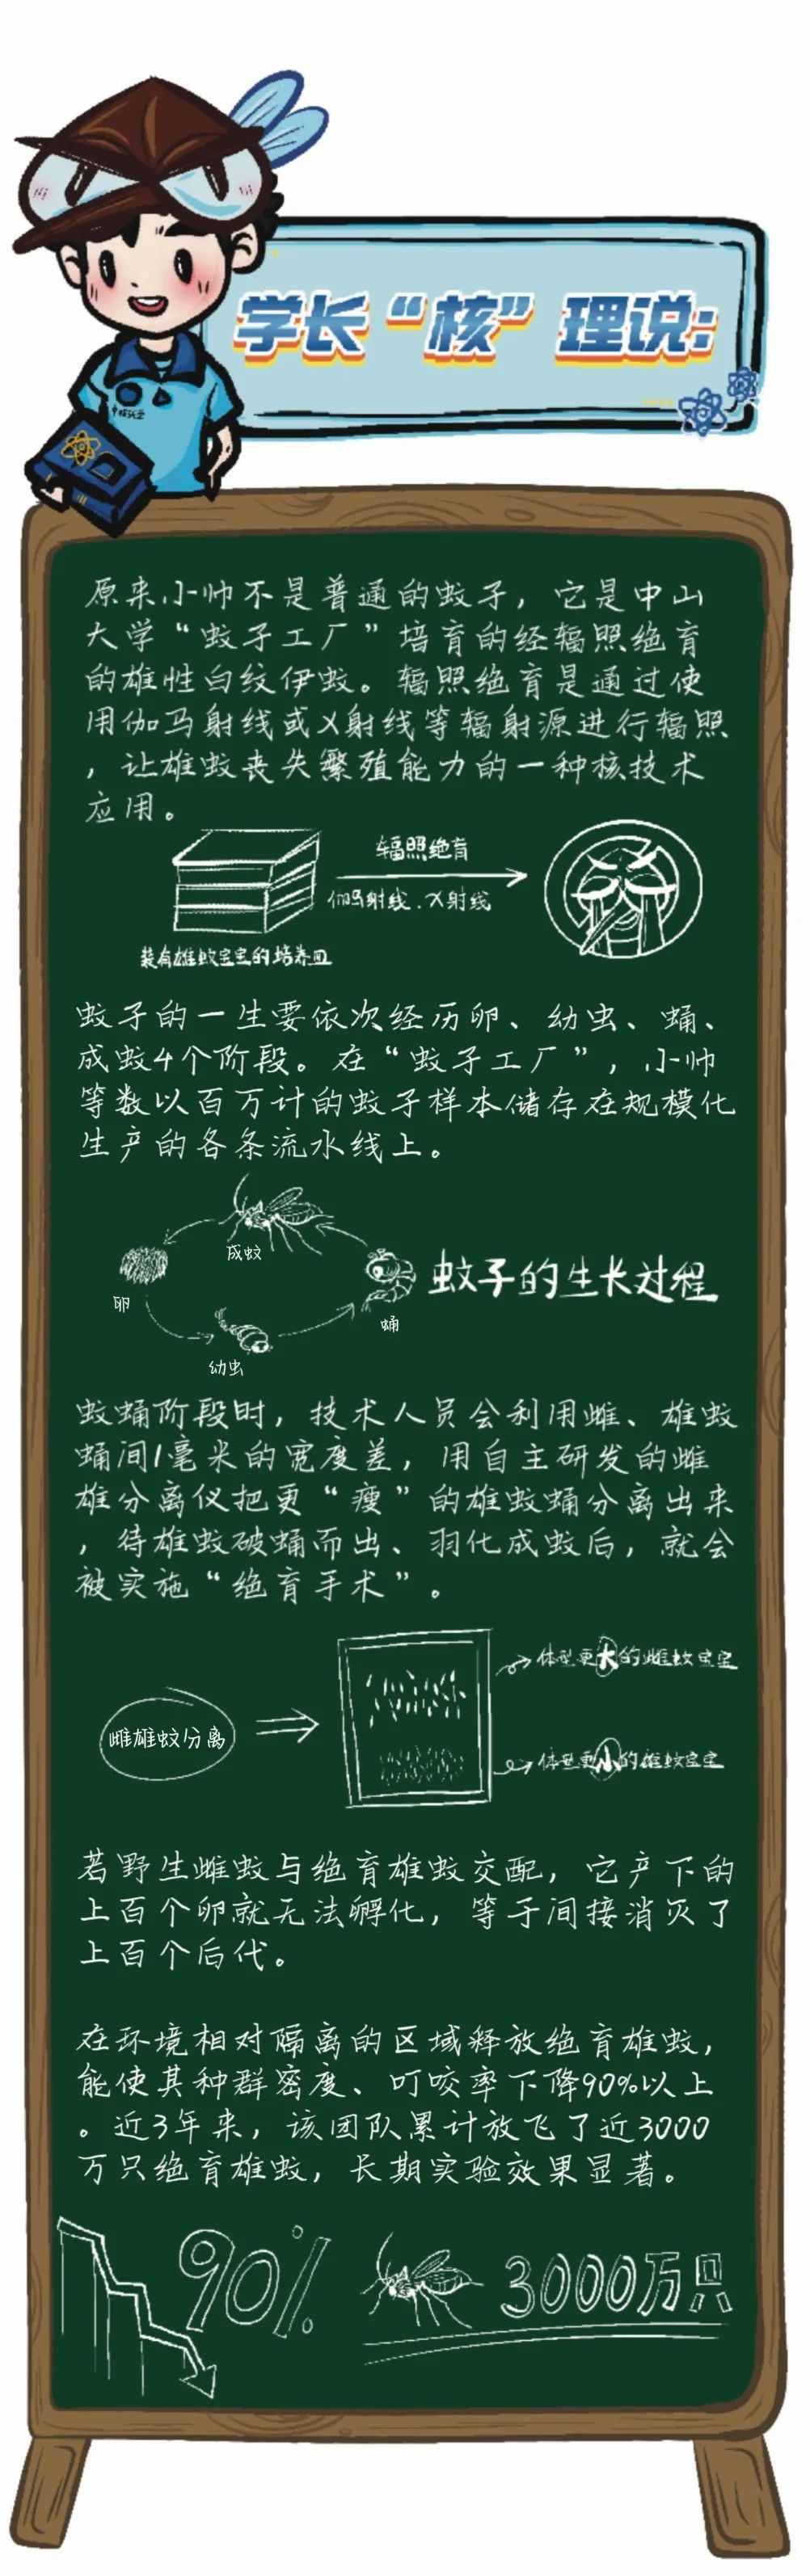 学长“核”理说：
原来小帅不是普通的蚊子，它是中山
大学“蚊子工厂”培育的经辐照绝育
的雄性白纹伊蚊。辐照绝育是通过使
用伽马射线或X射线等辐射源进行辐照
，让雄蚊丧失繁殖能力的一种核技术
应用。
辐照绝育
伽马射线、X射线
装有雄蚊宝宝的培养皿
蚊子的一生要依次经历卵、幼虫、蛹、
成蚊4个阶段。在“蚊子工厂”，小帅
等数以百万计的蚊子样本储存在规模化
生产的各条流水线上。
成蚊
卵
蛹
幼虫
蚊子的生长过程
蚊蛹阶段时，技术人员会利用雌、雄蚊
蛹间1毫米的宽度差，用自主研发的雌
雄分离仪把更“瘦”的雄蚊蛹分离出来
，待雄蚊破蛹而出、羽化成蚊后，就会
被实施“绝育手术”。
体型更大的雌蚊宝宝
雌雄蚊分离
体型更小的雄蚊宝宝
若野生雌蚊与绝育雄蚊交配，它产下的
上百个卵就无法孵化，等于间接消灭了
上百个后代。
在环境相对隔离的区域释放绝育雄蚊，
能使其种群密度、叮咬率下降90%以上
。近3年来，该团队累计放飞了近3000
万只绝育雄蚊，长期实验效果显著。
90%
3000万只